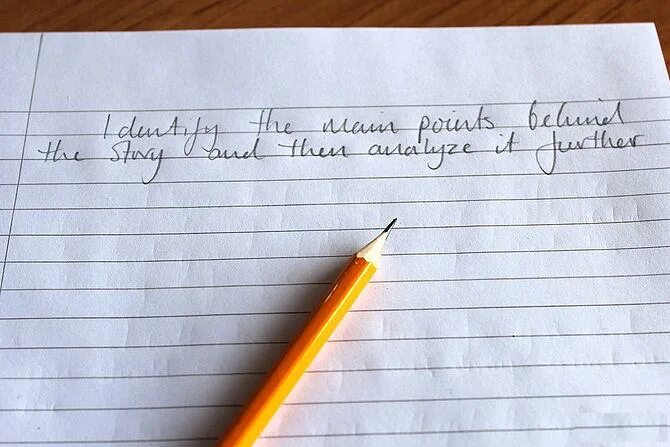 Identify the main points behind
the story and then analyze it further